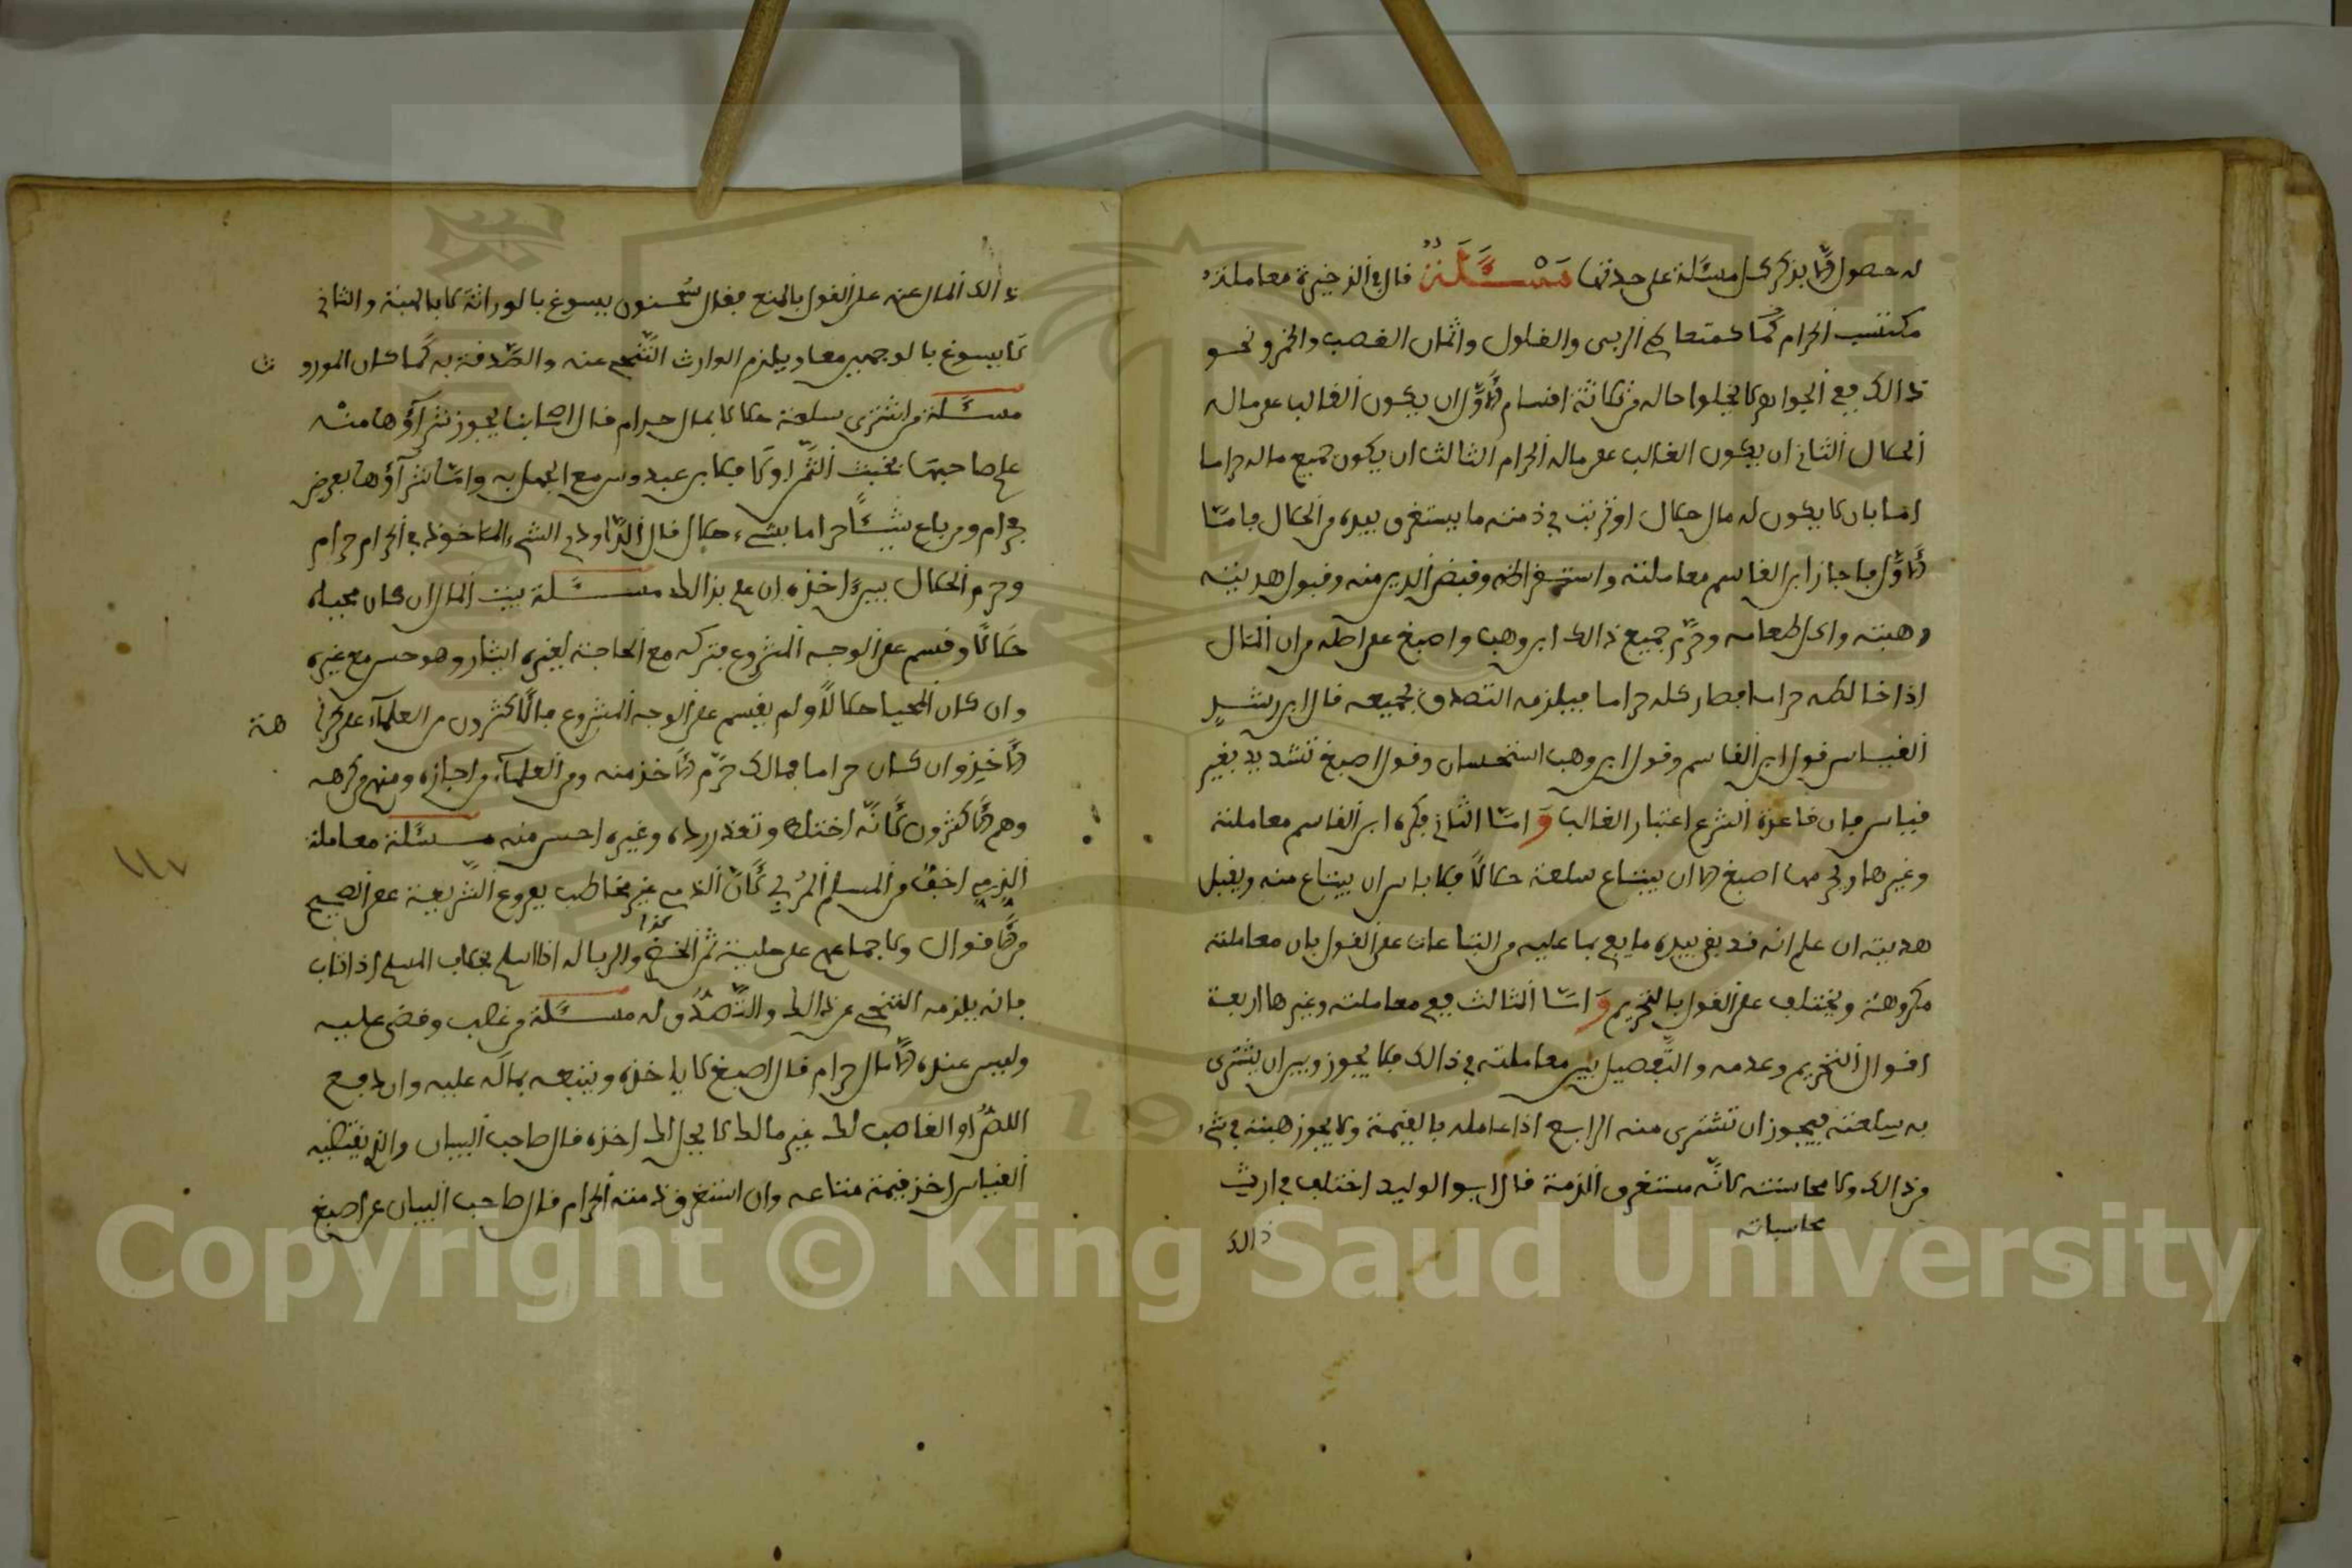 له حصول ولا بذكر كل مسئلة على حدتها مَسْئَلَةٌ قال في الذخيرة معاملة
مكتسب الحرام كمتعاطى الربى والغلول واثمان الغصب والخمر ونحو
ذالك فى الجواهر لا يخلوا حاله من ثلاثة اقسام الأوّل ان يكون الغالب على ماله
الحلال الثانى ان يكون الغالب على ماله الحرام الثالث ان يكون جميع ماله حراما
امّا بان لا يكون له مال حلال او ترتب فى ذمته ما يستغرق بيده من الحلال فامّا
الأوّل فاجاز ابن القاسم معاملته واستقراضه وقبض الدين منه وقبول هديته
وهبته واكل طعامه وحرّم جميع ذالك ابن وهب واصبغ على اصله من ان المال
اذا خالطه حرام فصار كله حراما فيلزمه التصدق بجميعه قال ابن رشد
القياس قول ابن القاسم وقول ابن وهب استحسان وقول اصبغ تشديد بغير
قياس فان قاعدة الشرع اعتبار الغالب وَامّا الثانى فكره ابن القاسم معاملته
وغيرها وحرمها اصبغ الا ان يبتاع سلعة حلالاً فلا باس ان يبتاع منه ويقبل
هديته ان علم انه قد بقى بيده ما يفى بما عليه من التباعات على القول بان معاملته
مكروهة ويختلف على القول بالتحريم وَامّا الثالث ففى معاملته وغيرها اربعة
اقوال التحريم وعدمه والتّفصيل بين معاملته فى ذالك فلا يجوز وبين ان يشترى
به سلعته فيجوز ان تشترى منه الرابع اذا عامله بالقيمة ولا يجوز هبته فى شىء
من ذالك ولا محاسنته لانّه مستغرق الذمة قال ابو الوليد اختلف فى ارث
محاسباته
ذالك
ذالك المال عنه على القول بالمنع فقال سُحنون يسوغ بالوراثة لا بالهبة والثانى
لا يسوغ بالوجهين معا ويلزم الوارث التّنحى عنه والصّدقة به كما كان الموروث
مسئلة من اشترى سلعة حلالا بمال حرام قال اصحابنا يجوز شرآؤها منه
علم صاحبها بخبث الثّمن او لا خلافا لابن عبدوس مع الجهل به وامّا شرآؤها بعرض
حرام ومن باع شيئًا حراما بشىء حلال قال الدّاودى الشىء الماخوذ فى الحرام حرام
وحرم الحلال بيد اخذه ان علم بذالك مسئلة بيت المال ان كان مجباه
حلالًا وقسم على الوجه المشروع فتركه مع الحاجة لغيره ايثار وهو حسن مع غيره
وان كان المجبا حلالًا ولم يقسم على الوجه المشروع فالاكثرون من العلماء على كراهة
الأخذ وان كان حراما فمالك حرّم الأخذ منه ومن العلماء من اجازه ومنهم من كرهه
وهم الأكثرون لأنّه اختلط وتعذر رده وغيره احسن منه مسئلة معاملة
الذمى اخفّ من المسلم المربى لأنّ الذمى غير مخاطب بفروع الشّريعة على الصحيح
من الأقوال ولاجماعهم على حلية ثمن الخمر كذا والربا له اذا اسلم بخلاف المسلم اذا تاب
فانه يلزمه التنحى عن ذالك والتّصدّق له مسئلة من غصب وقضى عليه
وليس عنده الا مال حرام قال اصبغ لا ياخذه ويتبعه بماله عليه وان دفع
اللصّ او الغاصب لك غير مالك لا يحل لك اخذه قال صاحب البيان والذى يقتضيه
القياس اخذ قيمة متاعه وان استغرق ذمته الحرام قال صاحب البيان عن اصبغ
١١٧
Copyright © King Saud University
1957